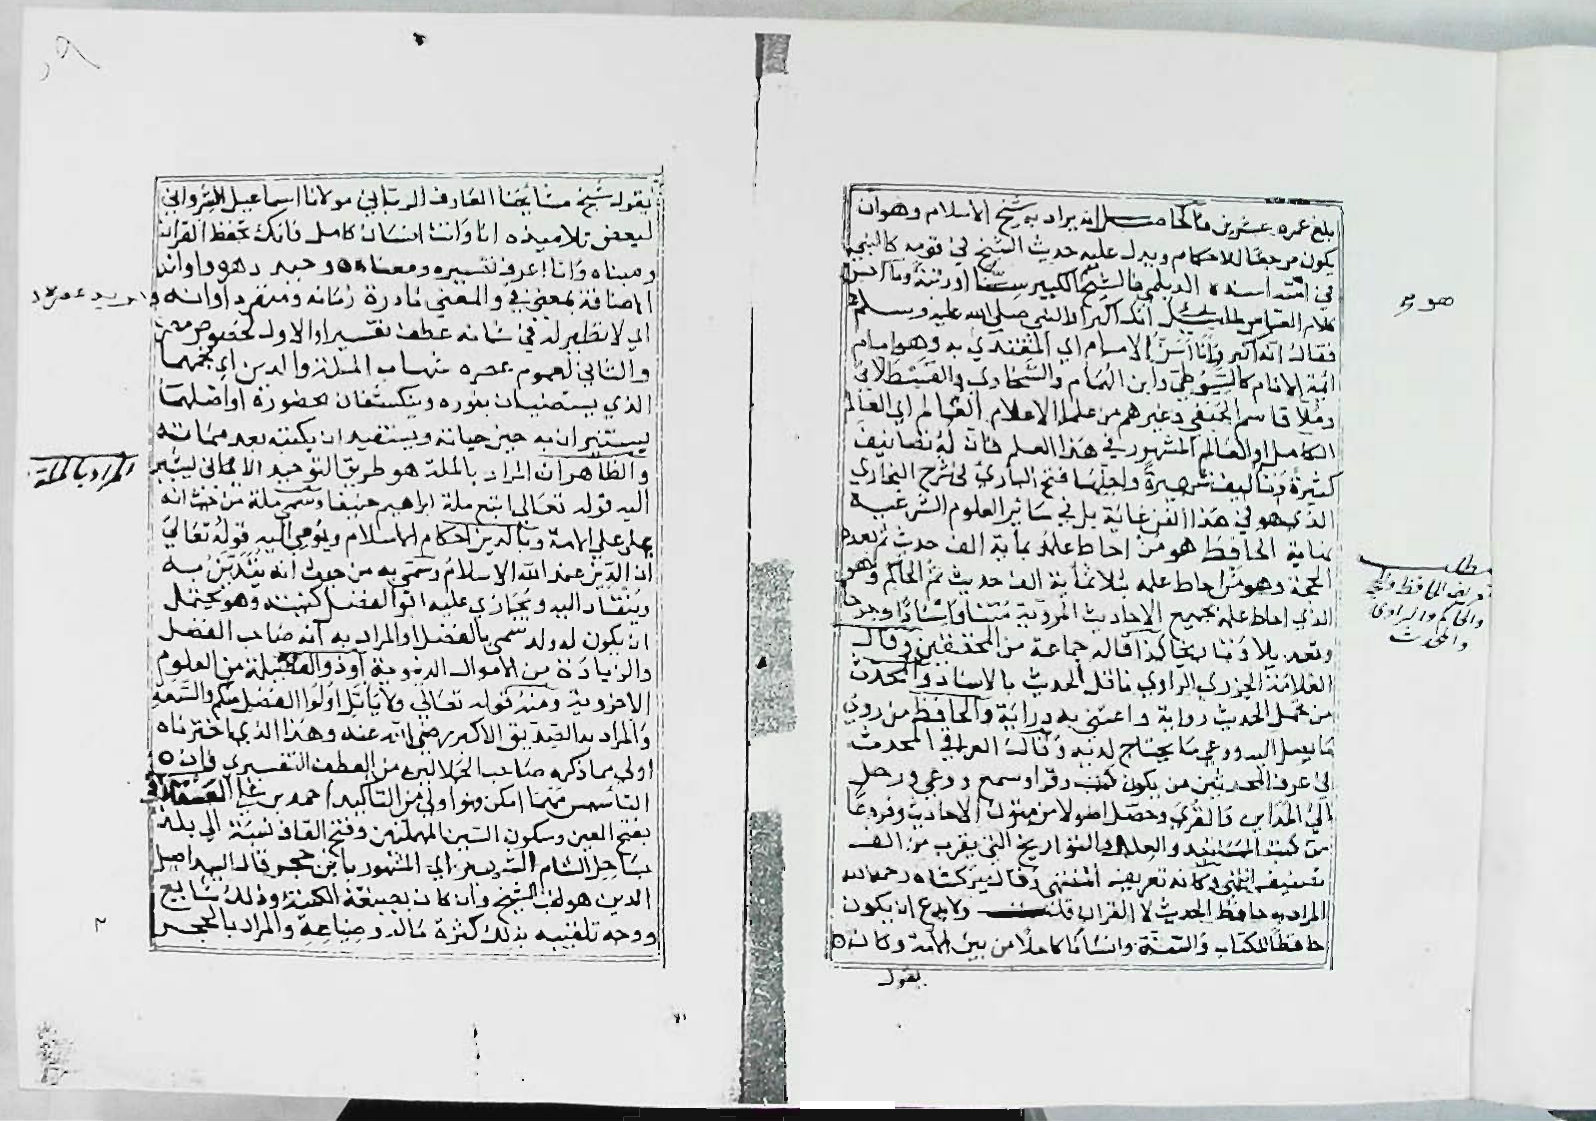 بلغ عمره عشرين فالحاصل انه يراد به شيخ الاسلام وهو ان
يكون مرجعا للاحكام ويدل عليه حديث الشيخ في قومه كالنبي
في امته اسنده الديلمي فالشيخ الكبير سنا او رتبة وما احسن
كلام العباس لما قيل له انك اكبر ام النبي صلى الله عليه وسلم
فقال انه اكبر وانا اسن الامام اي المقتدى به وهو امام
ائمة الانام كالسيوطي وابن الهمام والسخاوي والقسطلاني
وملا قاسم الحنفي وغيرهم من علما الاعلام العالم اي العالم
الكامل او العالم المشهور في هذا العلم فان له تصانيف
كثيرة وتاليف شهيرة واجلها فتح الباري في شرح البخاري
الذي هو في هذا الفن غاية بل في سائر العلوم الشرعية
نهاية الحافظ هو من احاط علمه بماية الف حديث ثم بعده
الحجة وهو من احاط علمه بثلاثماية الف حديث ثم الحاكم وهو
الذي احاط علمه بجميع الاحاديث المروية متنا واسنادا وجرحا
وتعديلا وتاريخا كذا قاله جماعة من المحققين وقال
العلامة الجزري الراوي ناقل الحديث بالاسناد والمحدث
من تحمل الحديث رواية واعتنى به دراية والحافظ من روى
ما يصل اليه ووعى ما يحتاج لديه وقال العراقي المحدث
في عرف المحدثين من يكون كتب وقرا وسمع ووعى ورحل
الى المداين والقرى وحصل اصولا من متون الاحاديث وفروعا
من كتب المسانيد والعلل والتواريخ التي يقرب من الف
تصنيف انتهى وكانه تعريف المنتهى وقال ميرك شاه رحمه الله
المراد به حافظ الحديث لا القران قلت ولا بدع ان يكون
حافظا للكتاب والسنة وانسانا كاملا من بين الامة وكان
يقول
هو
مطلب
تعريف الحافظ والحجة
والحاكم والراوي
والمحدث
يقوله شيخ مشايخنا العارف الرباني مولانا اسماعيل الشرواني
لبعض تلاميذه انا وانت انسان كامل فانك تحفظ القران
ومبناه وانا اعرف تفسيره ومعناه وحيد دهره واوانه
الاضافة بمعنى في والمعنى نادرة زمانه ومنفرد اوانه
اي لا نظير له في شانه عطف تفسير او الاول لخصوص
والثاني لعموم عصره شهاب الملة والدين اي نجمهما
الذي يستضيان بنوره ويكشفان بحضوره او اصلهما
يستنيران به حين حياته ويستفيد ان بكتبه بعد مماته
والظاهر ان المراد بالملة هو طريق التوحيد الايماني ليشير
اليه قوله تعالى اتبع ملة ابراهيم حنيفا وسمى ملة من حيث انه
يملى على الامة وبالدين احكام الاسلام ويومي اليه قوله تعالى
ان الدين عند الله الاسلام وسمى به من حيث انه يتدين به
وينقاد اليه ويجازى عليه ابو الفضل كنيته وهو يحتمل
ان يكون له ولد سمي بالفضل او المراد به انه صاحب الفضل
والزيادة من الاموال الدنيوية او ذو الفضيلة من العلوم
الاخروية ومنه قوله تعالى ولا ياتل اولوا الفضل منكم والسعة
والمراد به الصديق الاكبر رضي الله عنه وهذا الذي اخترناه
اولى مما ذكره صاحب الجلالين من العطف التفسيري فان
التاسيس مهما امكن هو اولى من التاكيد احمد بن علي العسقلاني
بفتح العين وسكون السين المهملتين وفتح القاف نسبة الى بلدة
بساحل الشام الشهير اي المشهور بابن حجر قال اصيل
الدين هو لقب الشيخ وان كان بصيغة الكنية وذلك شايع
ووجه تلقيبه بذلك كثرة ماله وضياعه والمراد بالحجر
المراد بالملة